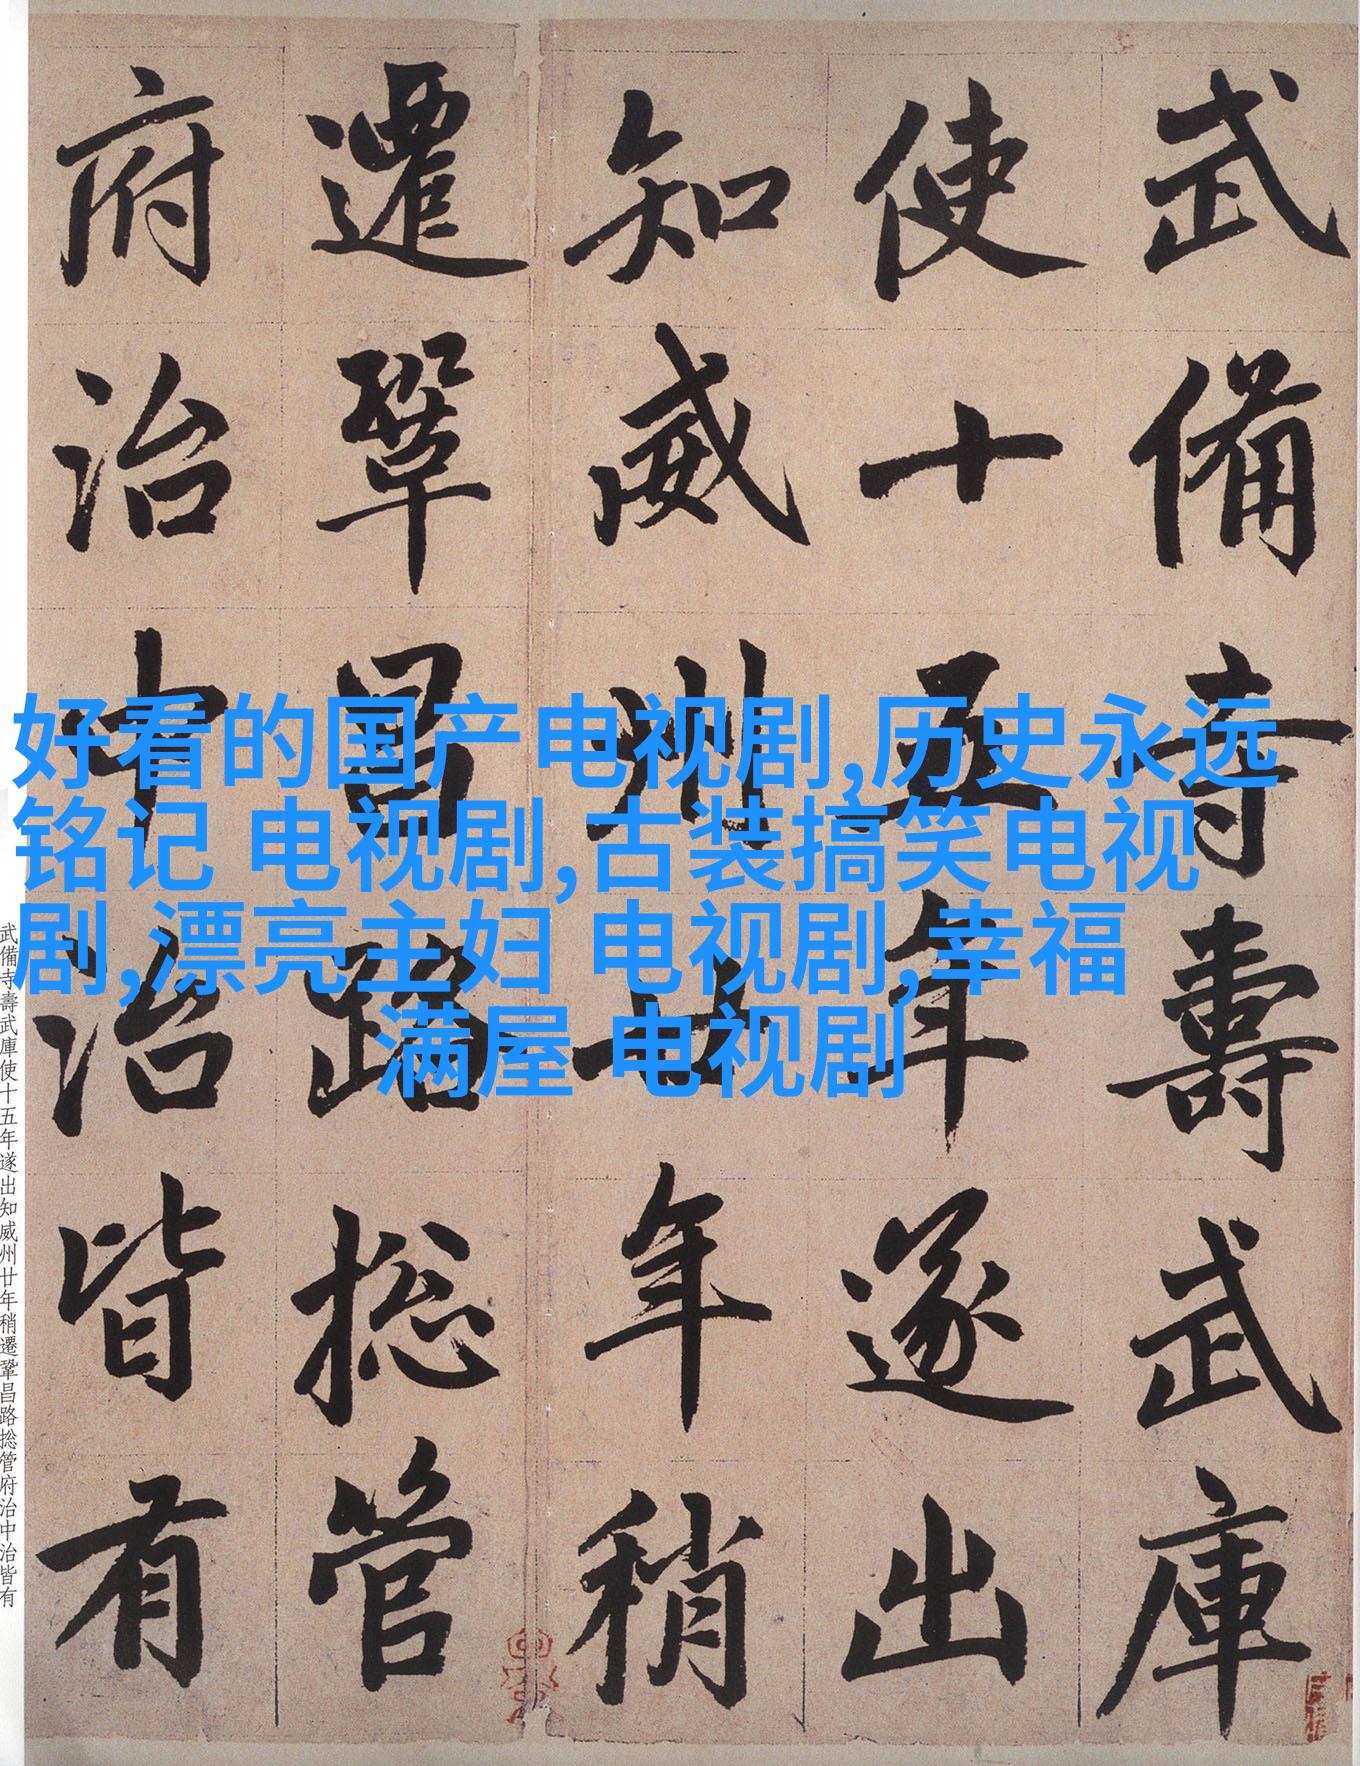 武備寺壽武庫
使十五年遂出
知威州廿年稍
遷鞏昌路捴管
府治中治皆有
好看的国产电视剧,历史永远
铭记 电视剧,古装搞笑电视
剧,漂亮主妇 电视剧,幸福
满屋 电视剧
武備寺壽武庫使十五年遂出知威州廿年稍遷鞏昌路捴管府治中治皆有